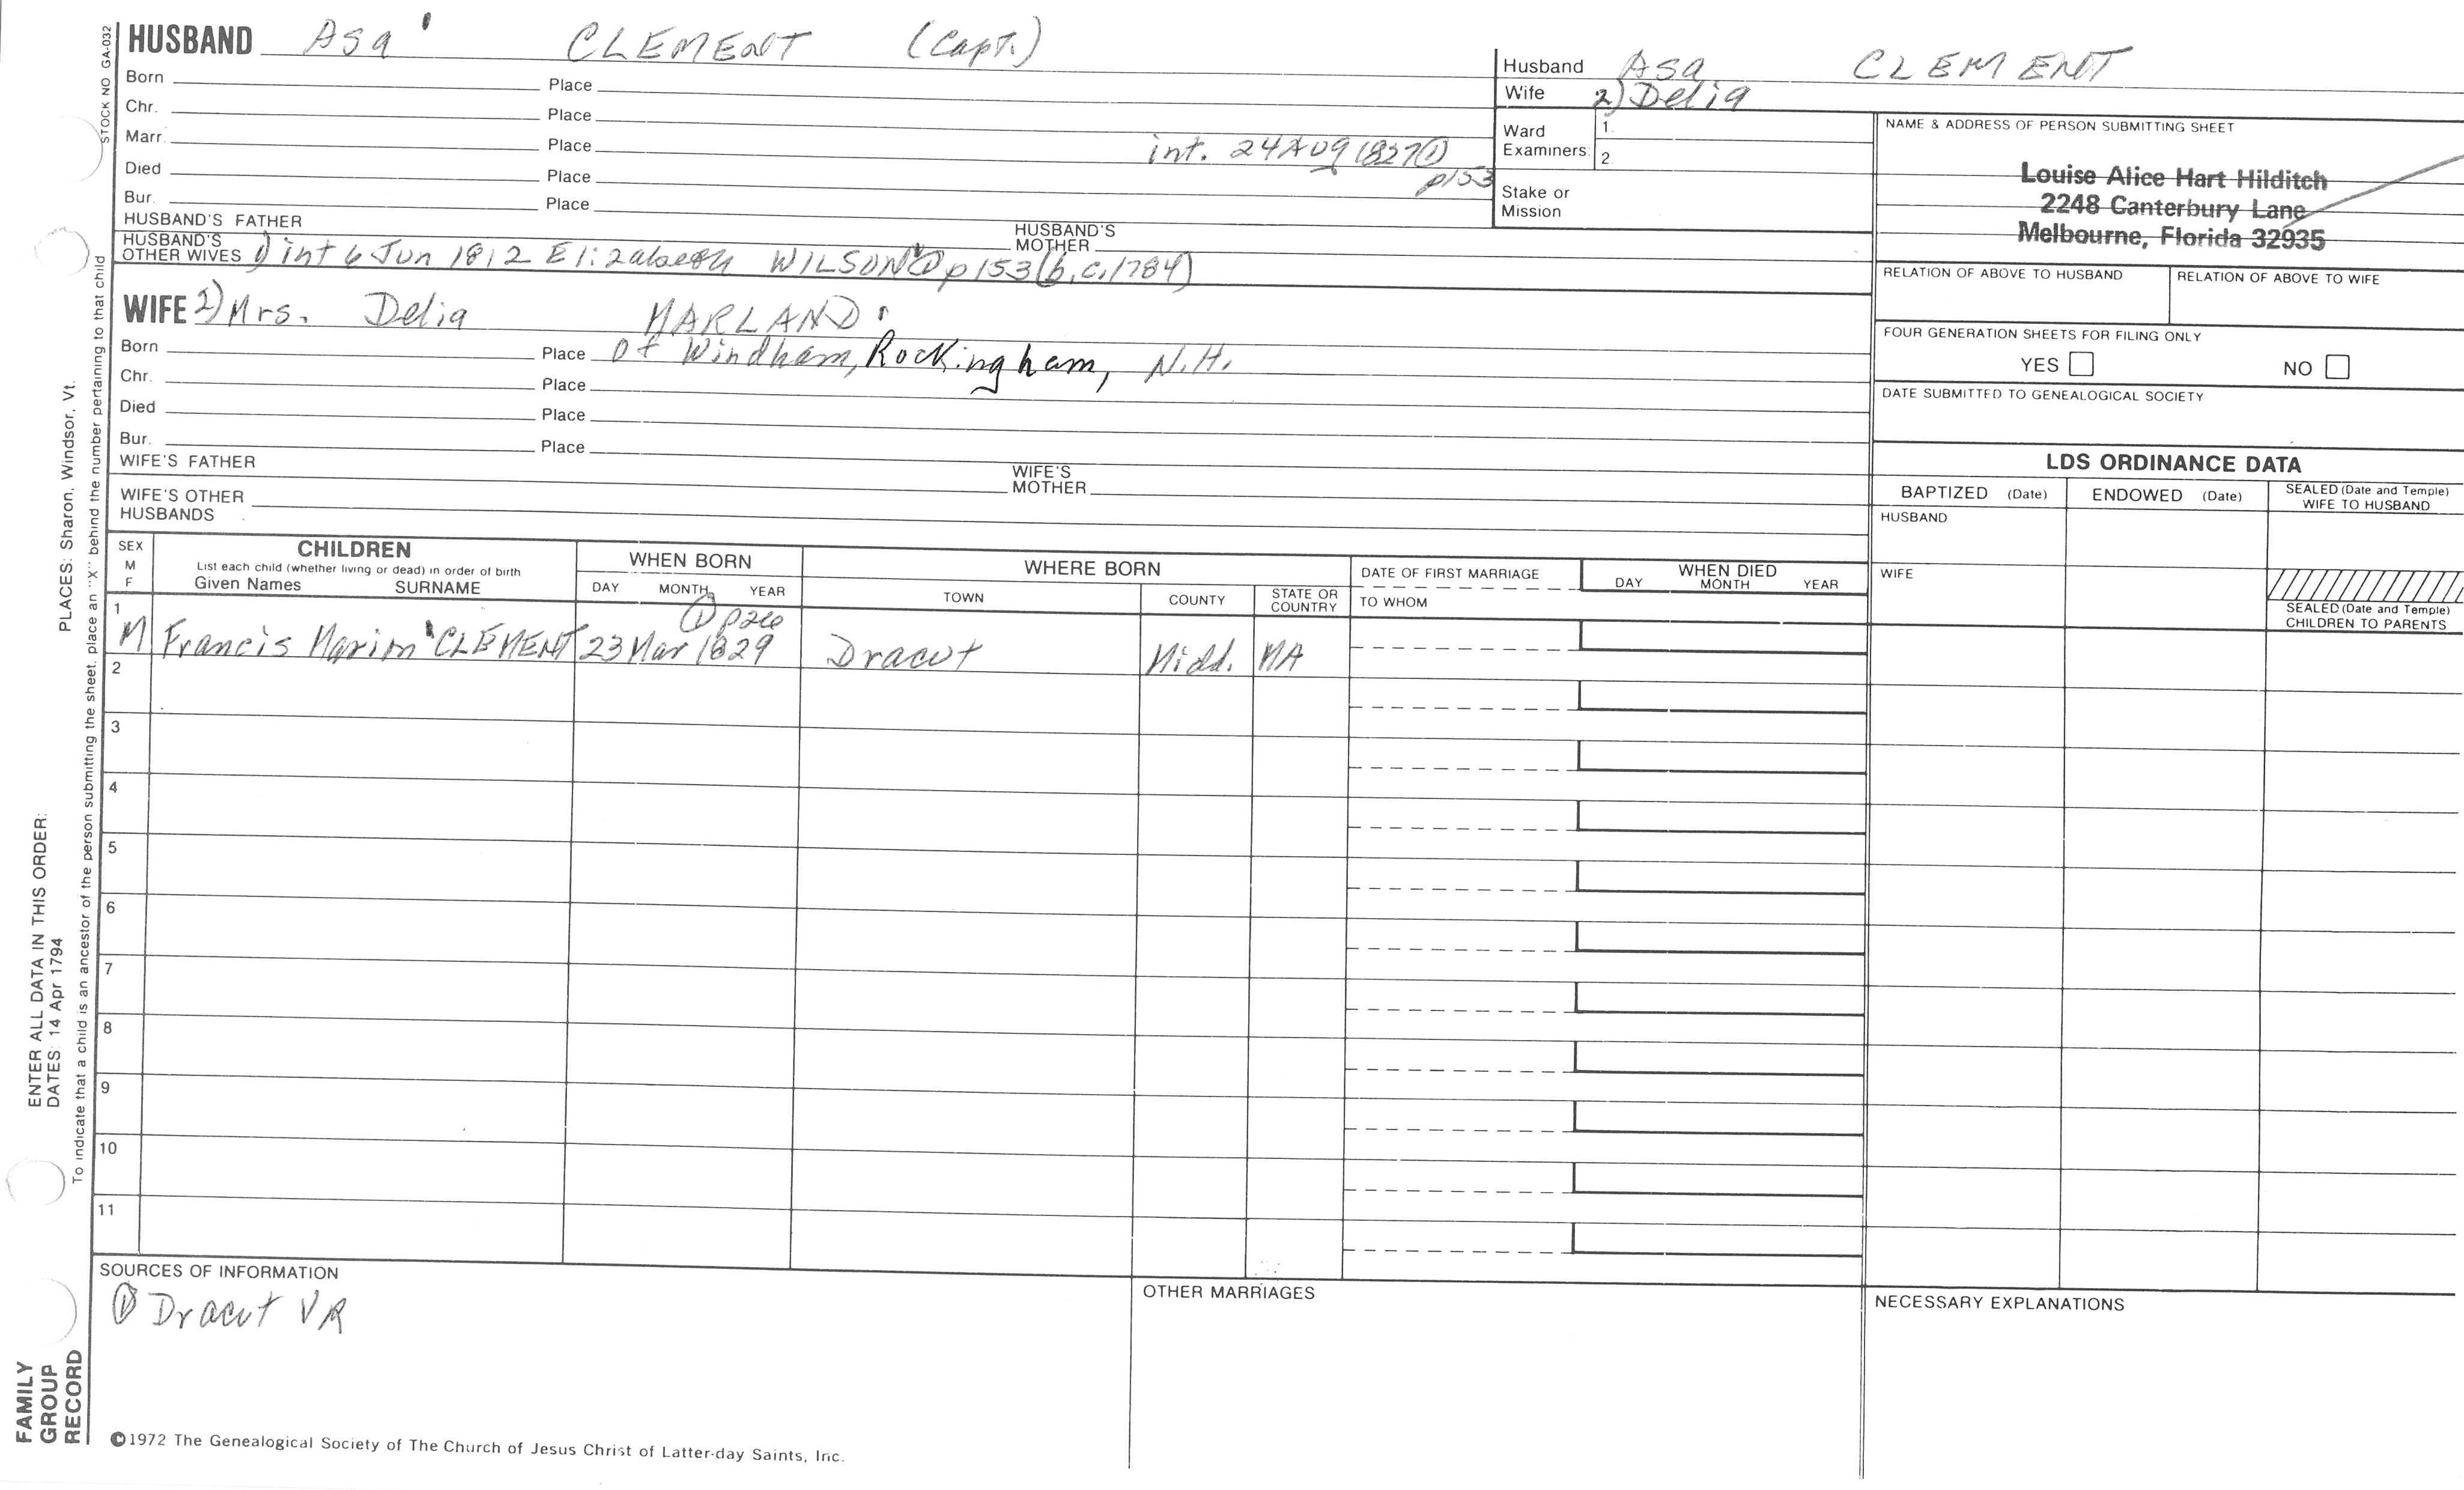 HUSBAND Asa CLEMENT (Capt.)
Born Place
Chr. Place
Marr. Place int. 24 Aug 1827 ① p153
Died Place
Bur. Place
HUSBAND'S FATHER HUSBAND'S MOTHER
HUSBAND'S OTHER WIVES 1) int 6 Jun 1812 Elizabeth WILSON ① p153 (b.c.1784)
WIFE 2) Mrs. Delia MARLAND
Born Place Of Windham, Rockingham, N.H.
Chr. Place
Died Place
Bur. Place
WIFE'S FATHER WIFE'S MOTHER
WIFE'S OTHER HUSBANDS
Husband Asa CLEMENT
Wife 2) Delia
Ward Examiners 1. 2.
Stake or Mission
NAME & ADDRESS OF PERSON SUBMITTING SHEET
Louise Alice Hart Hilditch
2248 Canterbury Lane
Melbourne, Florida 32935
RELATION OF ABOVE TO HUSBAND RELATION OF ABOVE TO WIFE
FOUR GENERATION SHEETS FOR FILING ONLY
YES NO
DATE SUBMITTED TO GENEALOGICAL SOCIETY
LDS ORDINANCE DATA
BAPTIZED (Date) ENDOWED (Date) SEALED (Date and Temple) WIFE TO HUSBAND
HUSBAND
WIFE
SEALED (Date and Temple) CHILDREN TO PARENTS
SEX M F
CHILDREN
List each child (whether living or dead) in order of birth
Given Names SURNAME
WHEN BORN
DAY MONTH YEAR
WHERE BORN
TOWN COUNTY STATE OR COUNTRY
DATE OF FIRST MARRIAGE
TO WHOM
WHEN DIED
DAY MONTH YEAR
① p26
1 M Francis Marion CLEMENT 23 Mar 1829 Dracut Midd. MA
2
3
4
5
6
7
8
9
10
11
SOURCES OF INFORMATION
① Dracut VR
OTHER MARRIAGES
NECESSARY EXPLANATIONS
©1972 The Genealogical Society of The Church of Jesus Christ of Latter-day Saints, Inc.
STOCK NO GA-032
To indicate that a child is an ancestor of the person submitting the sheet, place an "X" behind the number pertaining to that child
ENTER ALL DATA IN THIS ORDER:
DATES: 14 Apr 1794
PLACES: Sharon, Windsor, Vt.
FAMILY
GROUP
RECORD